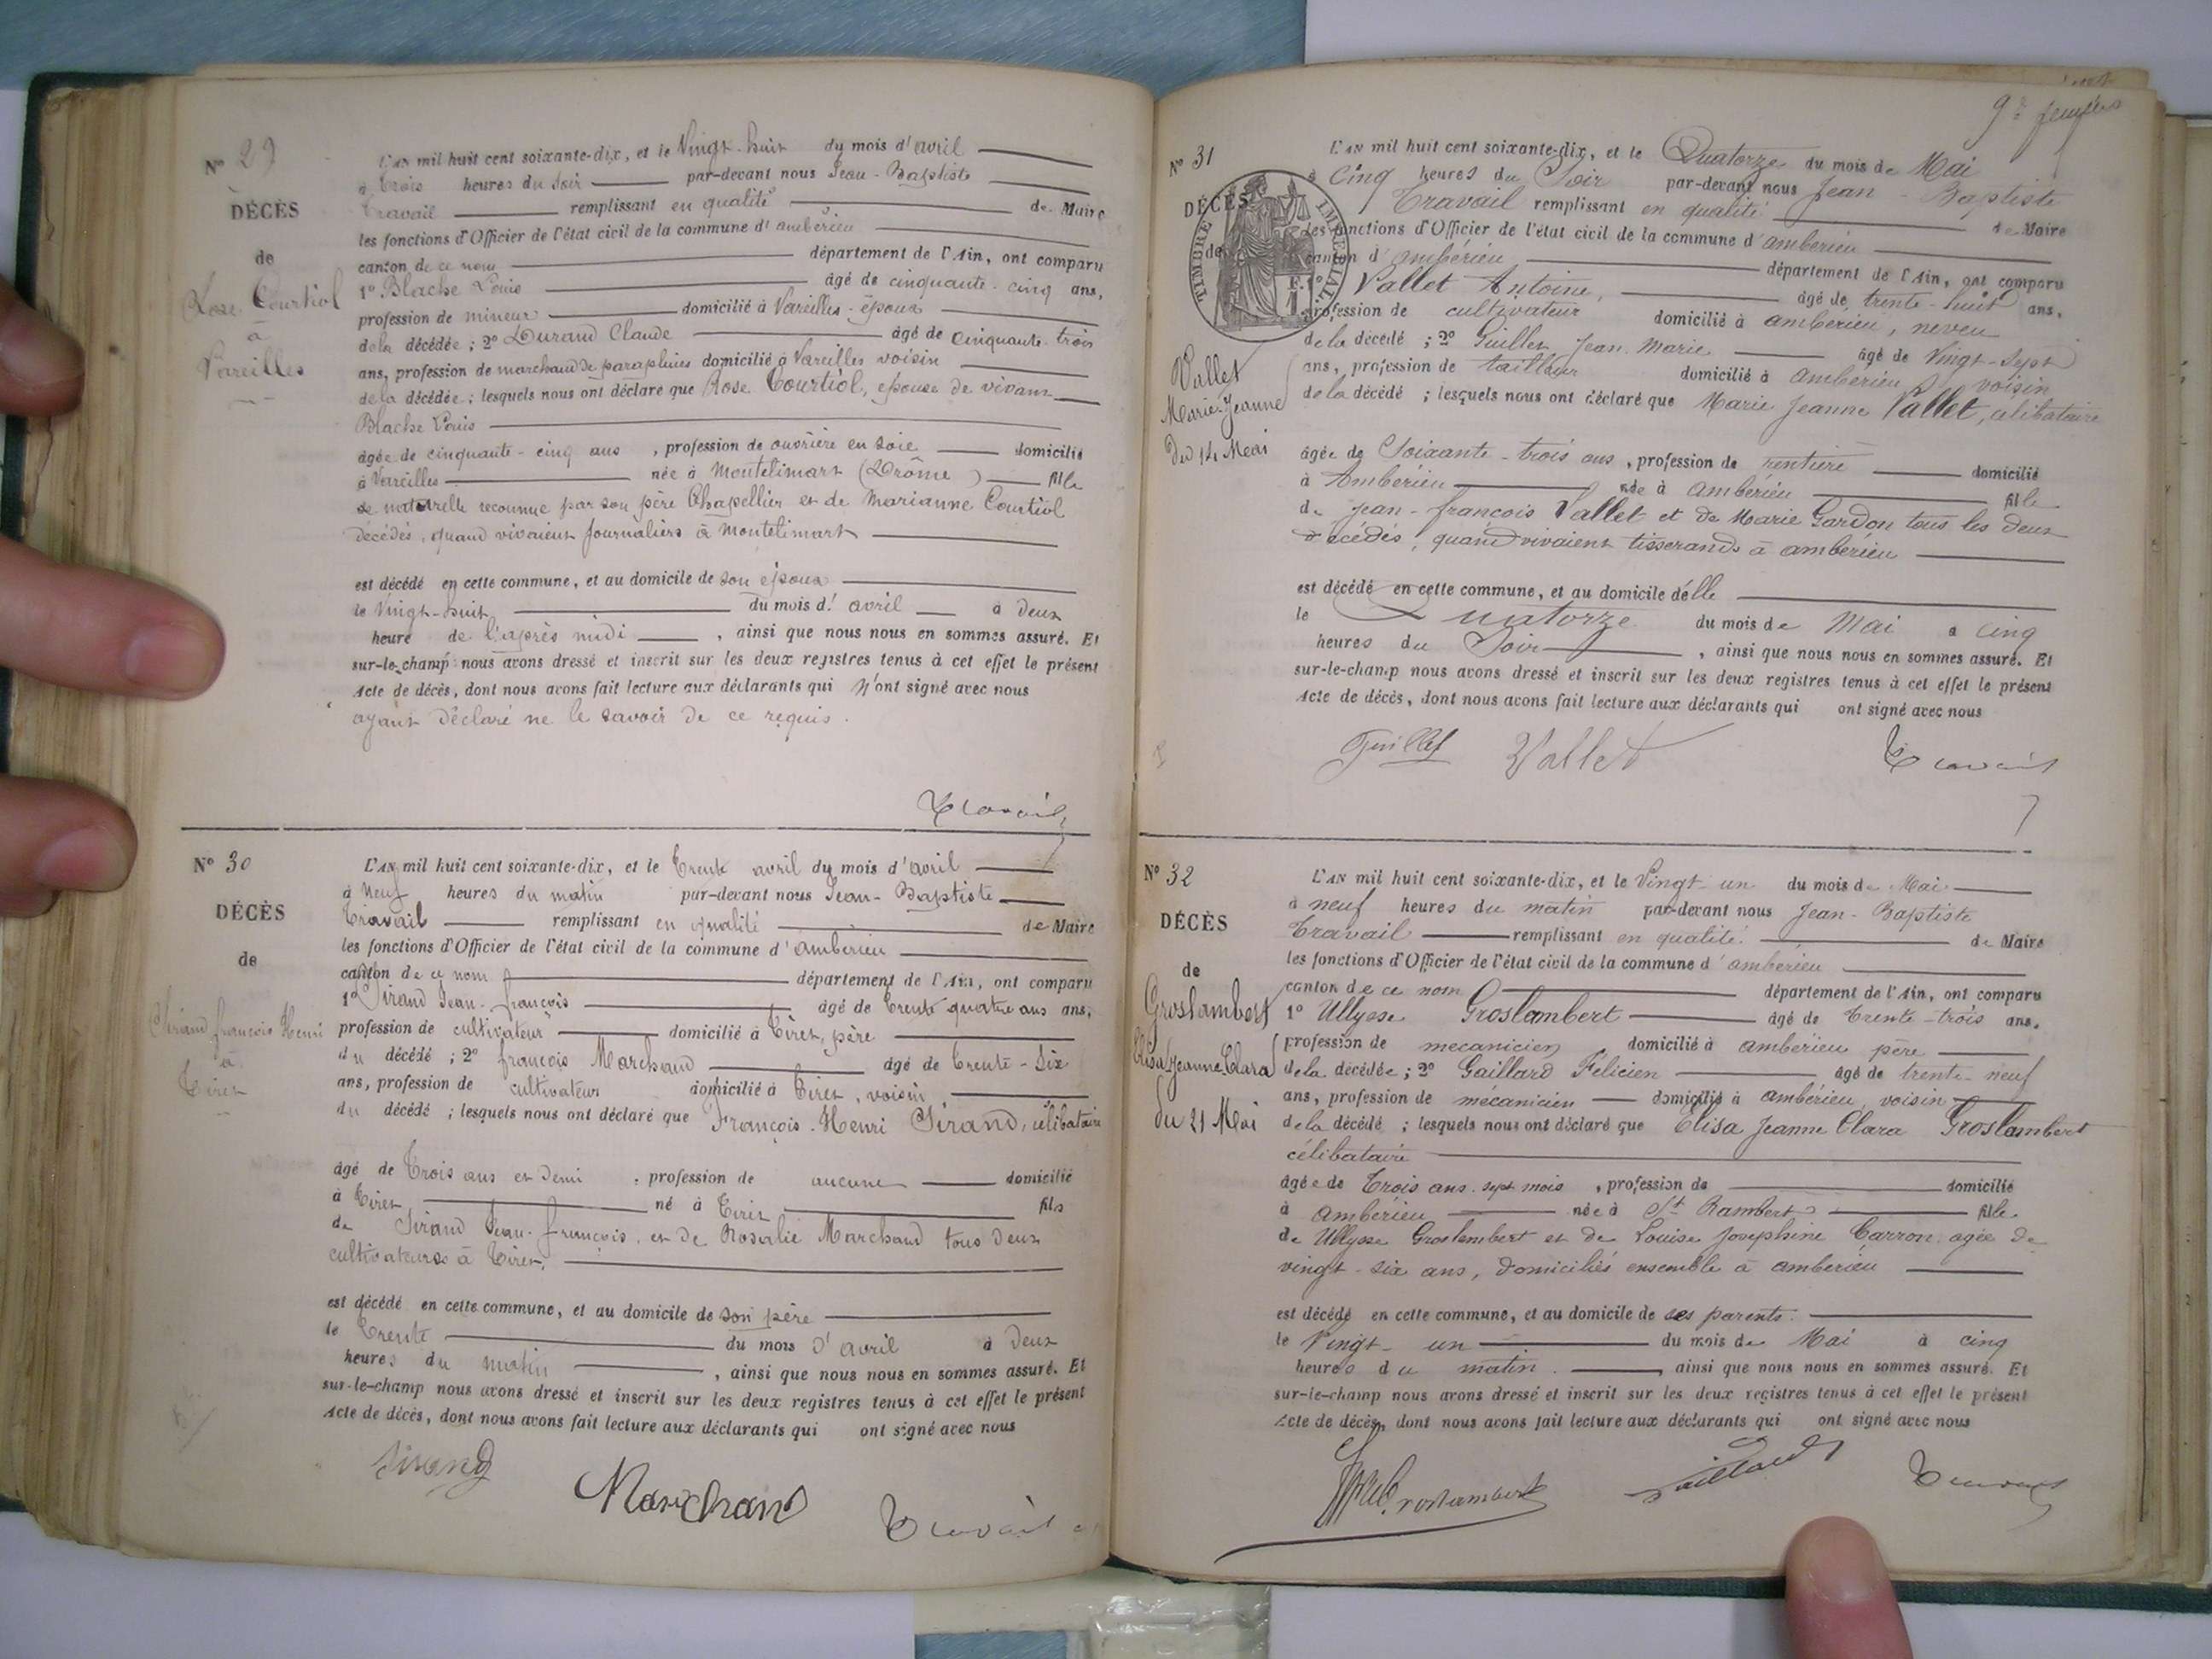 N° 29
DÉCÈS
de
Rose Courtiol
à
Vareilles
L'AN mil huit cent soixante-dix, et le Vingt-huit du mois d'avril
à trois heures du Soir par-devant nous Jean-Baptiste
Travail remplissant en qualité de Maire
les fonctions d'Officier de l'état civil de la commune d'ambérieu
canton de ce nom département de l'Ain, ont comparu
1° Blache Louis âgé de cinquante-cinq ans,
profession de mineur domicilié à Vareilles époux
de la décédée ; 2° Durand Claude âgé de cinquante-trois
ans, profession de marchand de parapluies domicilié à Vareilles voisin
de la décédée ; lesquels nous ont déclaré que Rose Courtiol, épouse de vivant
Blache Louis
âgée de cinquante-cinq ans, profession de ouvrière en soie domicilié
à Vareilles née à Montelimart (Drôme) fille
de naturelle reconnue par son père Chapellier et de Marianne Courtiol
décédés, quand vivaient journaliers à Montelimart
est décédé en cette commune, et au domicile de son époux
le Vingt-huit du mois d'avril à deux
heure de l'après midi, ainsi que nous nous en sommes assuré. Et
sur-le-champ nous avons dressé et inscrit sur les deux registres tenus à cet effet le présent
Acte de décès, dont nous avons fait lecture aux déclarants qui n'ont signé avec nous
ayant déclaré ne le savoir de ce requis.
Travail
N° 30
DÉCÈS
de
Sirand françois Henri
à
Tiret
L'AN mil huit cent soixante-dix, et le Trente avril du mois d'avril
à Neuf heures du matin par-devant nous Jean-Baptiste
Travail remplissant en qualité de Maire
les fonctions d'Officier de l'état civil de la commune d'ambérieu
canton de ce nom département de l'Ain, ont comparu
1° Sirand Jean-françois âgé de trente quatre ans ans,
profession de cultivateur domicilié à Tiret, père
du décédé ; 2° françois Marchand âgé de trente-six
ans, profession de cultivateur domicilié à Tiret, voisin
du décédé ; lesquels nous ont déclaré que François-Henri Sirand, célibataire
âgé de Trois ans et demi, profession de aucune domicilié
à Tiret né à Tiret fils
de Sirand Jean-françois, et de Rosalie Marchand tous deux
cultivateurs à Tiret,
est décédé en cette commune, et au domicile de son père
le Trente du mois d'avril à deux
heures du matin, ainsi que nous nous en sommes assuré. Et
sur-le-champ nous avons dressé et inscrit sur les deux registres tenus à cet effet le présent
Acte de décès, dont nous avons fait lecture aux déclarants qui ont signé avec nous
Sirand
Marchand
Travail
N° 31
DÉCÈS
de
TIMBRE IMPERIAL
Vallet
Marie-Jeanne
du 14 Mai
L'AN mil huit cent soixante-dix, et le Quatorze du mois de Mai
à Cinq heures du Soir par-devant nous Jean-Baptiste
Travail remplissant en qualité de Maire
les fonctions d'Officier de l'état civil de la commune d'ambérieu
canton d'ambérieu département de l'Ain, ont comparu
Vallet Antoine, âgé de trente-huit ans,
profession de cultivateur domicilié à ambérieu, neveu
de la décédé ; 2° Guillet Jean Marie âgé de Vingt-Sept
ans, profession de tailleur domicilié à ambérieu, voisin
de la décédé ; lesquels nous ont déclaré que Marie Jeanne Vallet, célibataire
âgée de Soixante-trois ans, profession de rentière domicilié
à Ambérieu née à ambérieu fille
de Jean-françois Vallet et de Marie Gardon tous les deux
décédés, quand vivaient tisserands à ambérieu
est décédé en cette commune, et au domicile d'elle
le Quatorze du mois de Mai à cinq
heures du Soir, ainsi que nous nous en sommes assuré. Et
sur-le-champ nous avons dressé et inscrit sur les deux registres tenus à cet effet le présent
Acte de décès, dont nous avons fait lecture aux déclarants qui ont signé avec nous
Guillet Vallet Travail
N° 32
DÉCÈS
de
Groslambert
Elisa Jeanne Clara
du 21 Mai
L'AN mil huit cent soixante-dix, et le Vingt-un du mois de Mai
à neuf heures du matin par-devant nous Jean-Baptiste
Travail remplissant en qualité de Maire
les fonctions d'Officier de l'état civil de la commune d'ambérieu
canton de ce nom département de l'Ain, ont comparu
1° Ullysse Groslambert âgé de trente-trois ans,
profession de mecanicien domicilié à ambérieu père
de la décédée ; 2° Gaillard Félicien âgé de trente-neuf
ans, profession de mécanicien domicilié à ambérieu, voisin
de la décédé ; lesquels nous ont déclaré que Elisa Jeanne Clara Groslambert
célibataire
âgée de Trois ans sept mois, profession de domicilié
à ambérieu née à St Rambert fille
de Ullysse Groslambert et de Louise Josephine Carron agée de
vingt-six ans, domiciliés ensemble à ambérieu
est décédé en cette commune, et au domicile de ses parents.
le Vingt-un du mois de Mai à cinq
heures du matin, ainsi que nous nous en sommes assuré. Et
sur-le-champ nous avons dressé et inscrit sur les deux registres tenus à cet effet le présent
Acte de décès, dont nous avons fait lecture aux déclarants qui ont signé avec nous
Groslambert Gaillard Travail